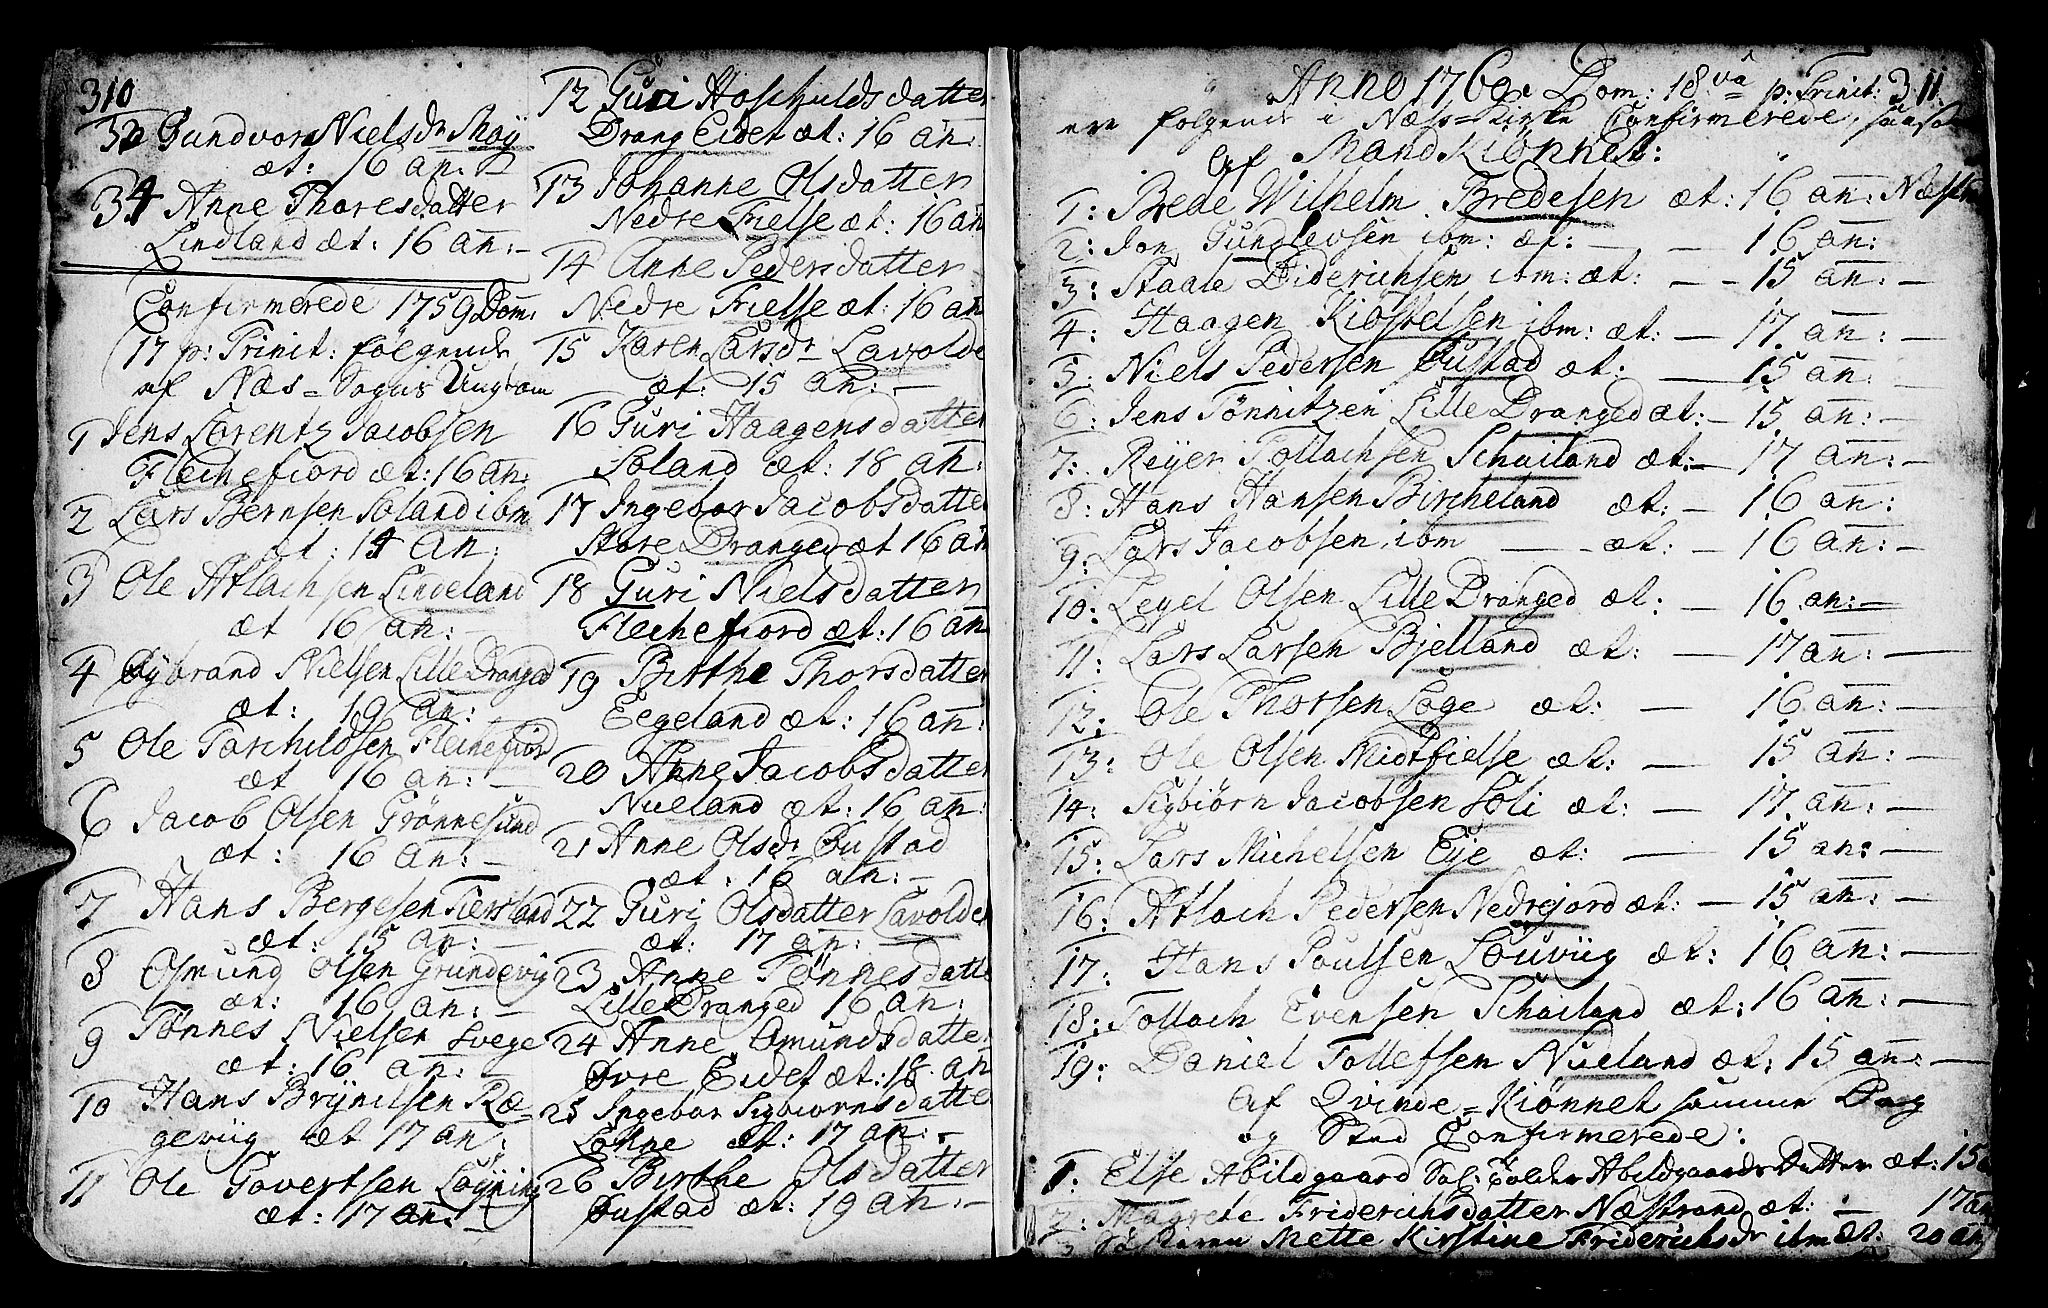 310
33 Gundvor Nielsdr
æt: 16 an: -
34 Anne Thoresdatter
Lindland æt: 16 an: -
Confirmerede 1759 Dom:
17 p: Trinit: følgende
af Næs = Sogns Ungdom
1 Jens Lorentz Jacobsen
Flechefiord æt: 16 an:
2 Lars Bernsen Soland ibm
æt: an:
3 Ole Atlachsen Lindeland
æt 16 an: -
4 Sybrand Nielsen Lille Dranged
æt: 19 an:
5 Ole Tarchildsen Flechefiord
æt 16 an: -
6 Jacob Olsen Grønnesund
æt: 16 an: -
7 Hans Bergesen Fiersland
æt: 15 an: -
8 Osmund Olsen Grundevig
æt: 16 an: -
9 Tønnes Nielsen Svege
æt: 16 an: -
10 Hans Brynilsen Ræ-
geviig æt 17 an:
11 Ole Govertsen
æt: 17 an: -
12 Guri Hoschuldsdatter
Drang Eidet æt: 16 an:
13 Johanne Olsdatter
Nedre Fielse æt: 16 an
14 Anne Pedersdatter
Nedre Fielse æt: 16 an
15 Karen Larsdr Lavolde
æt: 15 an: -
16 Guri Haagensdatter
Soland æt: 18 an:
17 Ingebor Jacobsdatter
Store Dranged æt 16 an
18 Guri Nielsdatter
Flechefiord æt: 16 an
19 Birthe Thorsdatter
Eegeland æt: 16 an:
20 Anne Jacobsdatter
Nueland æt: 16 an:
21 Anne Olsdr Øustad
æt: 16 an: -
22 Guri Olsdatter Lavolde
æt: 17 an: -
23 Anne Tønnesdatte
Lille Dranged 16 an:
24 Anne Omundsdatter
Øvre Eidet æt: 18 an
25 Ingebor Sigbiørnsdatte
Løhne æt: 17 an: -
26 Birthe Olsdatter
Øustad æt: 19 an: -
Anno 1760. Dom: 18va p: Trinit: 311.
ere følgende i Næss = Kirke Confirmerede,
Af Mand Kiønnet:
1: Brede Wilhelm Bredesen æt: 16 an:
2: Jon Gundlevsen ibm: æt: - - 16 an:
3: Staale Diderichsen ibm: æt: - - 15 an: -
4: Haagen Kiøstelsen ibm: æt: - 17 an: -
5: Niels Pedersen Øustad æt: - 15 an: -
6: Jens Tønnitzen Lille Dranged æt: - 15 an: -
7: Reyer Tollachsen Schailand æt: - 17 an: -
8: Hans Hansen Bircheland æt: - 16 an:
9: Lars Jacobsen ibm - - æt: - 16 an: -
10: Legel Olsen Lille Dranged æt: - 16 an: -
11: Lars Larsen Bjelland æt: - 17 an: -
12: Ole Thorsen Loge æt: - 16 an: -
13: Ole Olsen Midtfielse æt: - 15 an: -
14: Sigbiørn Jacobsen Loli æt: - 17 an: -
15: Lars Michelsen Eje æt: - 15 an: -
16: Atlach Pedersen Nedrejord æt: - 15 an: -
17: Hans Poulsen Louviig æt: 16 an: -
18: Tollach Evensen Schailand æt: 16 an: -
19: Daniel Tollefsen Nueland æt: 15 an: -
Af Qvinde = Kiønnet samme Dag
og Sted Confirmerede:
1. Else Abildgaard Sal: Abildgaards Datter æt: 15
2: Magrete Friderichsdatter Næstrand æt: - 17 an
3 Mette Kirstine Friderichsdr ibm æt: 20 an